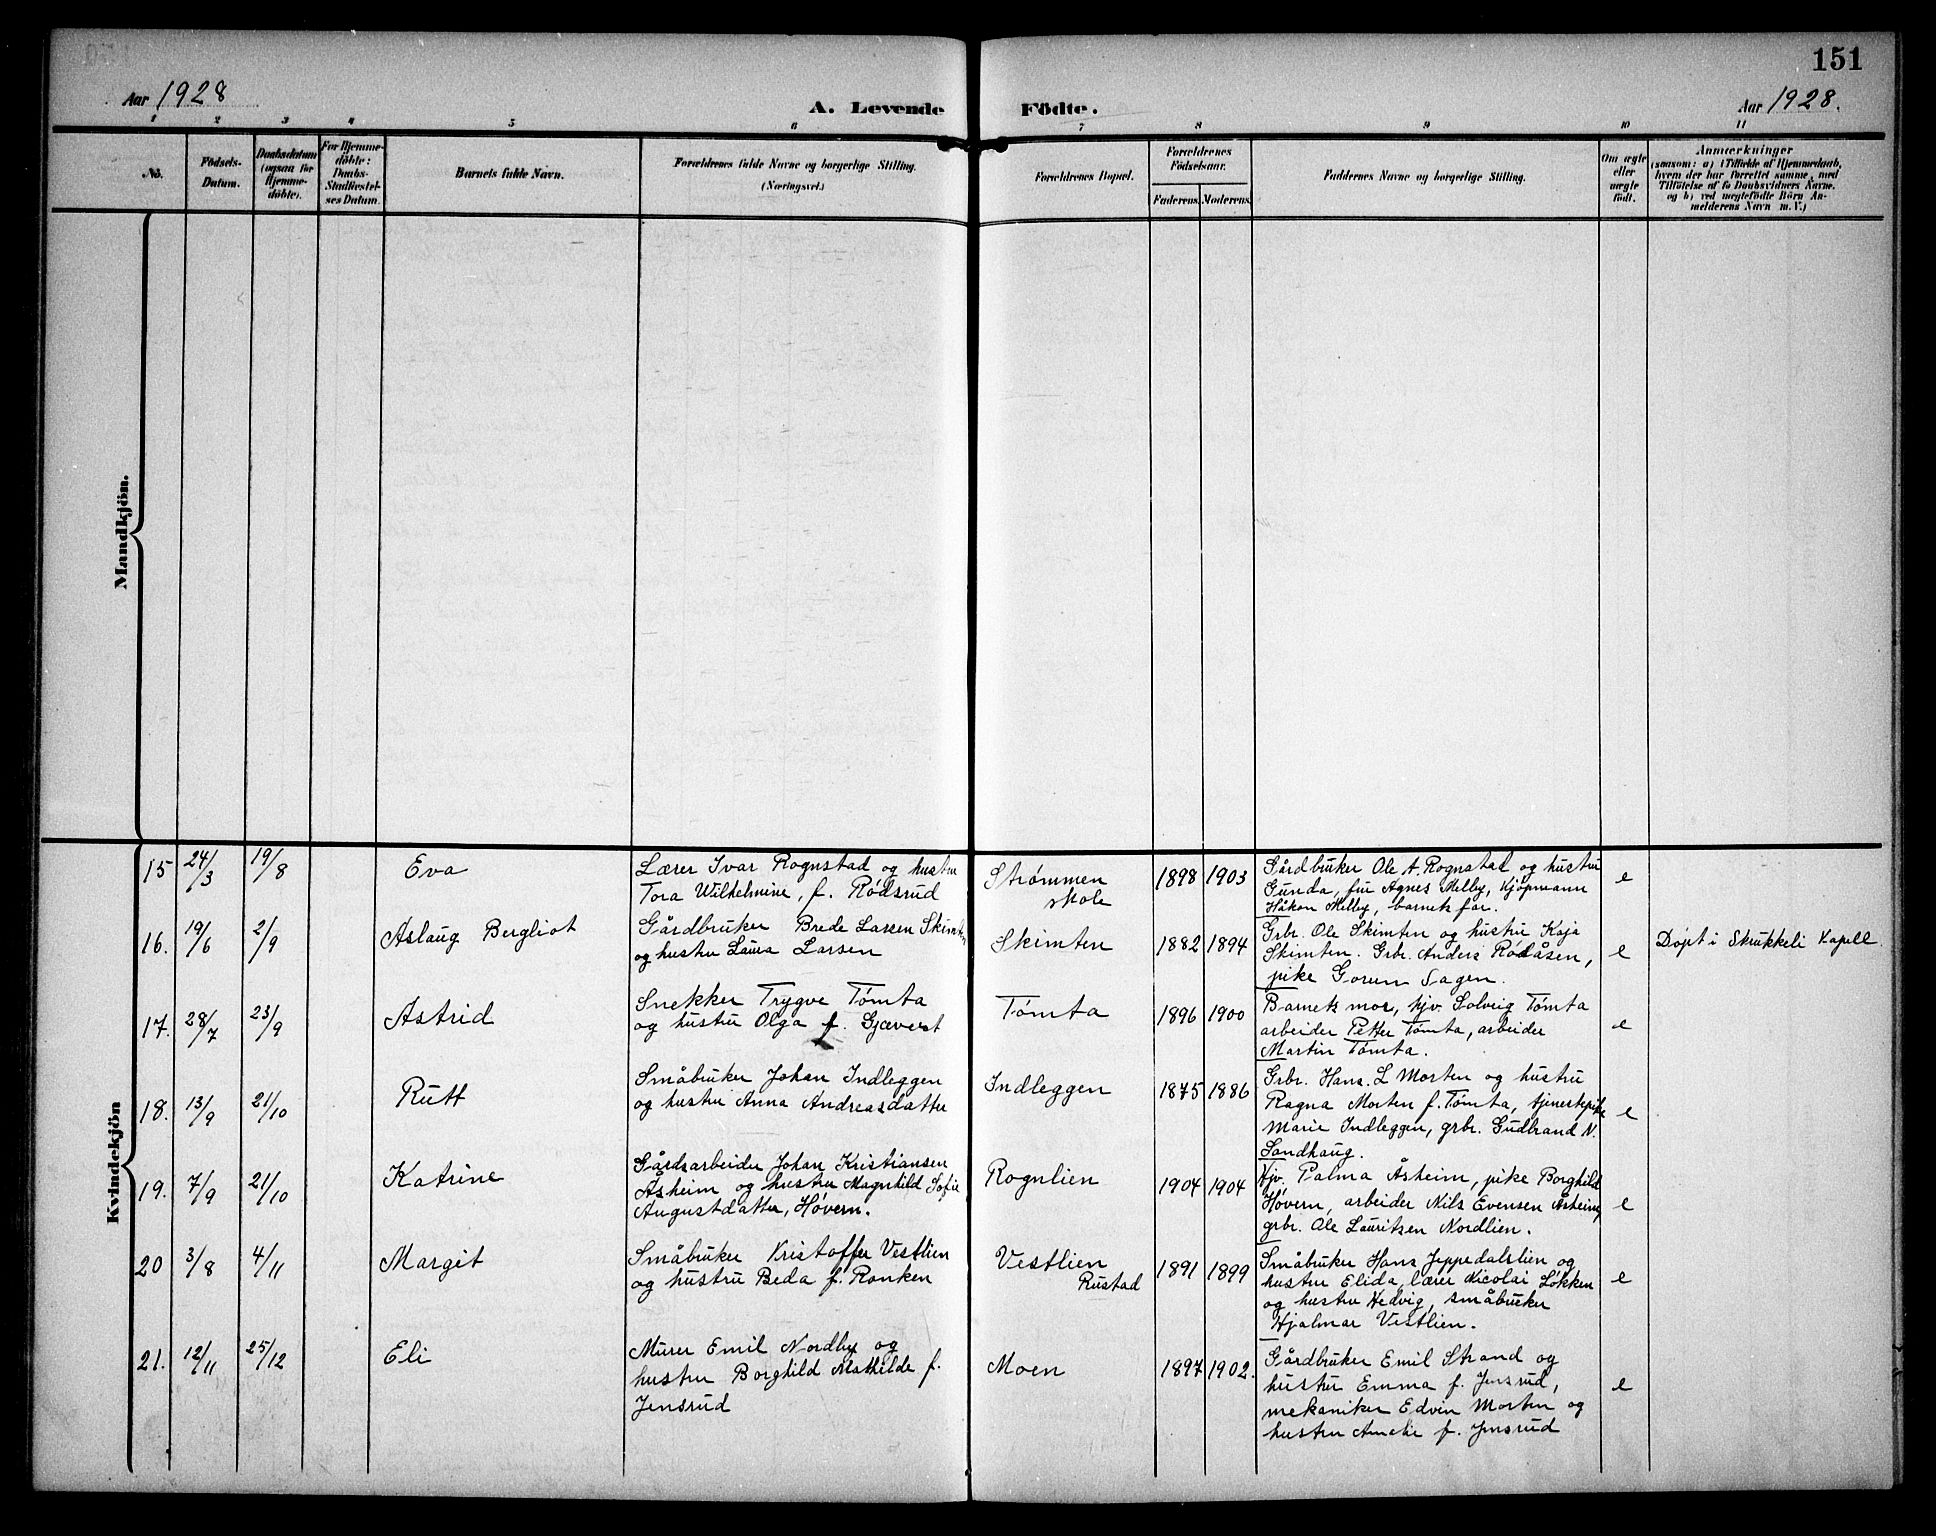 151
Aar 1928
A. Levende Födte.
Aar 1928.
1 2 3 4 5 6 7 8 9 10 11
No.
Födsels-
Datum.
Daabsdatum
(ogsaa for
Hjemme-
döbte).
For Hjemme-
döbte:
Daabs-
Stadfæstel-
ses Datum.
Barnets fulde Navn.
Forældrenes fulde Navne og borgerlige Stilling.
(Næringsvei.)
Forældrenes Bopæl.
Forældrenes
Födselsaar.
Faderens. Moderens.
Faddernes Navne og borgerlige Stilling.
Om ægte
eller
uægte
födt.
Anmærkninger
(saasom: a) i Tilfælde af Hjemmedaab,
hvem der har forrettet samme, med
Tilföielse af to Daabsvidners Navne,
og b) ved uægtefödte Börn An-
melderens Navn m. V.)
Mandkjön.
Kvindekjön
15 24/3 19/8 Eva
Lærer Ivar Rognstad og hustru
Tora Wilhelmine, f. Rødsrud
Strømmen
skole
1898 1903
Gårdbruker Ole A. Rognstad og hustru
Gunda, frk. Agnes Melby, Kjøpmann
Håkon Melby, barnets far.
e
16. 19/6 2/9 Aslaug Bergliot
Gårdbruker Brede Larsen Skimten
og hustru Laura Larsen
Skimten
1882 1894
Grbr. Ole Skimten og hustru Kaja
Skimten. Grbr. Anders Rødåsen,
pike Gorun Sagen.
e
Døpt i Skrukkeli Kapell.
17. 28/7 23/9 Astrid
Snekker Trygve Tømta
og hustru Olga f. Gjævert
Tømta
1896 1900
Barnets mor, hjv. Solveig Tømta
arbeider Petter Tømta, arbeider
Martin Tømta.
e
18. 13/9 21/10 Rutt
Småbruker Johan Indleggen
og hustru Anna Andreasdatter
Indleggen
1875 1886
Grbr. Hans. L Morten og hustru
Ragna Morten f. Tømta, tjenestepike
Marie Indleggen, grbr. Gudbrand N.
Sandhaug.
e
19. 7/9 21/10 Katrine
Gårdsarbeider Johan Kristiansen
Åsheim, og hustru Magnhild Sofie
Augustdatter, Høvern.
Rognlien
1904 1904
Hjv. Palma Åsheim, pike Borghild
Høvern, arbeider Nils Evensen Åsheim,
grbr. Ole Lauritsen Nordlien.
e
20 3/8 4/11 Margit
Småbruker Kristoffer Vestlien
og hustru Beda f. Ronken
Vestlien
Rustad
1891 1899
Småbruker Hans Jeppedalslien og
hustru Elida, lærer Nicolai Løkken
og hustru Hedvig, småbruker
Hjalmar Vestlien.
e
21. 12/11 25/12 Eli
Murer Emil Nordby og
hustru Borghild Mathilde f.
Jensrud
Moen
1897 1902.
Gårdbruker Emil Strand og
hustru Emma f. Jensrud,
mekaniker Edvin Morten og
hustru Amalie f. Jensrud
e